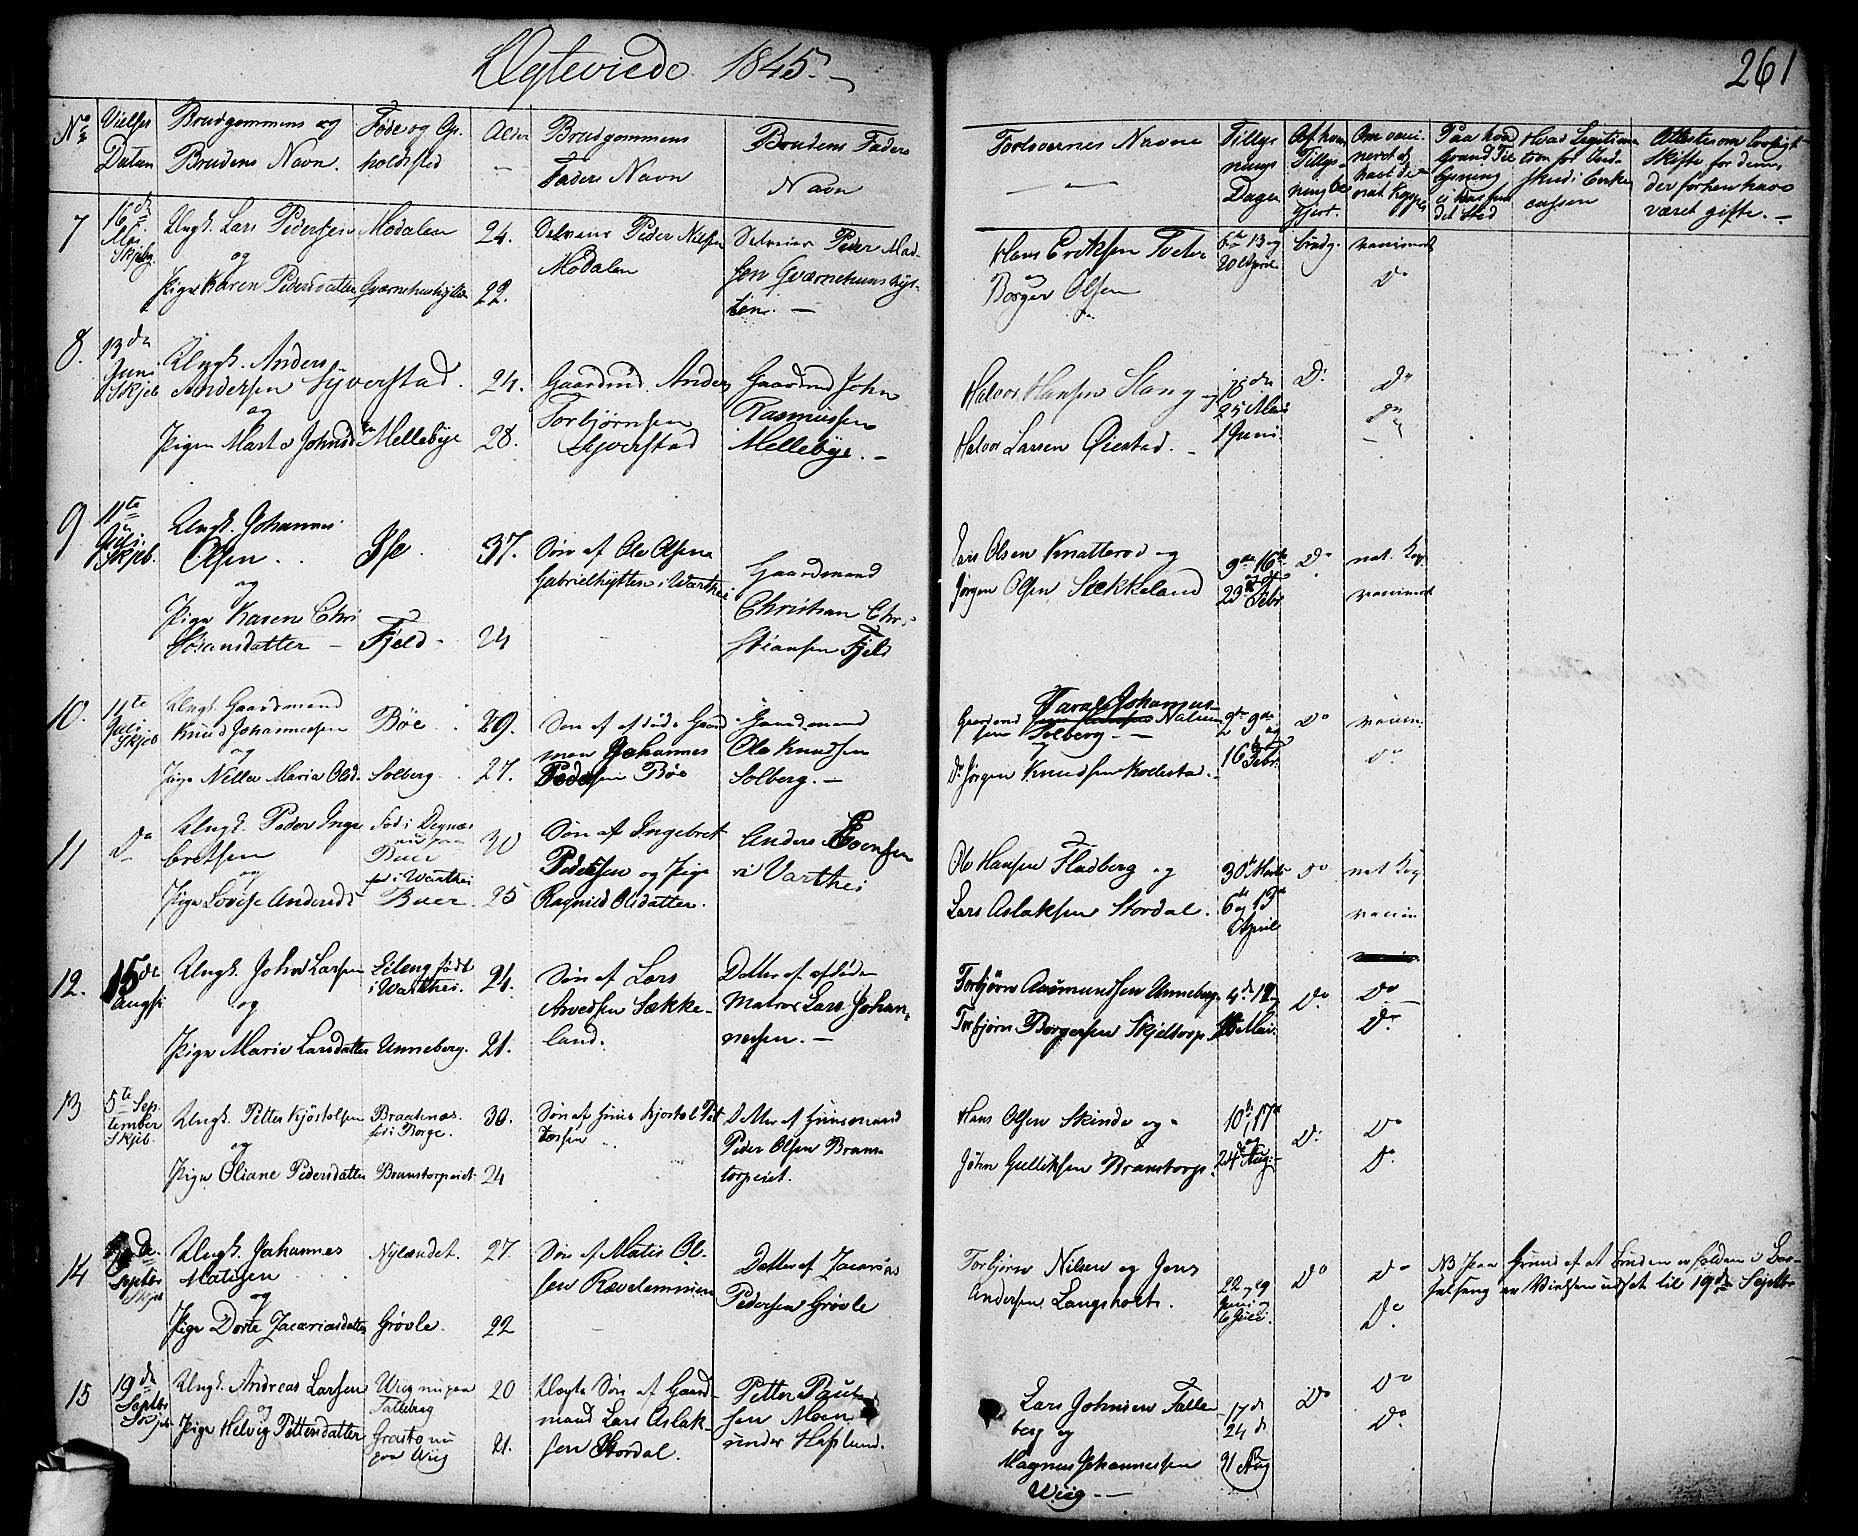 Ægteviede 1845.
261
No
Vielses Datum
Brudgommens og Brudens Navn.
Føde og Opholdsted
Alder
Brudgommens Faders Navn
Brudens Faders Navn
Forlovernes Navne
Tillysnings Dagen
Af hvem Tillysning begjert.
Om vaccineret el. havt de nat. Kopper
Paa hvad Grund Tillysning ei har fundet Sted
Hvad Legitimation for Indskud i Enkecassen
Attester om lovligt Skifte for dem, der forhen have været gifte. —
7
16de
Skjeb.
Ungk. Lars Pedersen
og
Pige Karen Pedersdatter
Modalen
24.
22.
Peder Nilsen
Modalen
Peder Mad-
sen
Hans Eriksen Tveter
og
Borger Olsen
6te 13 og
20 April
Brudg.
vaccineret
Do
8.
13de
Juni
Skjeb
Ungk. Anders
Andersen Syverstad.
og
Pigen Marte Johnsd
Mellebye
24.
28.
Gaardmd. Anders
Torbjørnsen
Syverstad
Gaardmd John
Rasmussen
Mellebye. —
Halvor Hansen Stang og
Halvor Larsen Øiestad. —
18de
25 Mai
1 Juni
Do
Do
Do
9
11te
Juli
Skjeb.
Ungk. Johannes
Olsen.
og
Pige Karen Chri
stiansdatter —
Ise.
Fjeld.
37.
24
Søn af Ole Olsen
Gabrielhytten i Warthei
Gaardmand
Christian Chri-
stiansen Fjeld
Lars Olsen Knatterød og
Jørgen Olsen Sækkeland
9de 16de
og
23de Febr
Do
nat. Kop.
vaccineret
10.
11te
Juli
Skjeb
Ungk. Gaardmand
Knud Johannessen
og
Pige Nellea Maria Olsd.
Bøe
Solberg.
29.
27.
Søn af afdøde Gaard
man Johannes
Pedersen Bøe
Gaardmand
Ole Knudsen
Solberg. —
Taral Johannes-
sen Solberg —
Do Jørgen Knudsen Kollestad. —
2de 9de
og
16de Febr.
Do
vaccin.
Do
11
Do
Ungk. Peder Inge
bretsen
og
Pige Lovise Andersd
Buer
Buer
30
25
Søn af Ingebret
Pedersen og Pige
Ragnild Olsdatter.
Anders Evensen
i Varthei
Ole Hansen Fladberg og
Lars Aslaksen Stordal.
30te Marts
6te og 13de
April
Do
nat Kop
vaccin
12.
15de
August
Ungk. John Larsen
og
Pige Marie Larsdatter
Eileng født
i Warthei.
Unneberg.
24.
21.
Søn af Lars
Arvedsen Sække-
land.
Datter af afdøde
Matros Lars Johan-
nessen. —
Torbjørn Aasmundsen Unneberg
Torbjørn Borgersen Skjeltorp
4de 12
18 Mai.
Do
Do
Do
13
5te Sep
tember
Skjeb.
Ungk. Petter Kjøstolsen
og
Pige Oliane Pedersdatter
Braatnæs
fød i Borge.
Branstorpeiet
30.
24
Søn af Huus Kjøstol Pet
tersen
Datter af Huusmand
Peder Olsen Brans
torpeiet.
Hans Olsen Skinde og
John Gulliksen Branstorp.
10de, 17de
og
24de Aug.
Do
Do
Do
14
Septbr
Skjeb
Ungk. Johannes
Matisen
og
Pige Dorte Jacariasdatter
Nylændet.
Grøvle.
27.
22
Søn af Matis Ol-
sen Rævelemmien
Datter af Jacarias
Pedersen Grøvle
Torbjørn Nilsen og Jens
Andersen Langsholt.
22 og 29
Juni og
6 Juli.
Do
Do
Do
NB Paa Grund af at Bruden er holden i Bar-
selseng er Vielsen udsat til 19de Septbr
15
19de
Septbr
Skjeb.
Ungk. Andreas Larsen
og
Pige Helvig Pettersdatter
Wiig nu paa
Falleberg
Graato nu
paa Wiig
20
21.
Ægte Søn af Gaard-
mand Lars Aslak-
sen Stordal.
Petter Paul
sen Moen
under Hafslund.
Lars Johnsen Falle
berg og
Magnus Johannessen
Wiig —
17de
24de
31 Aug
Do
Do
Do